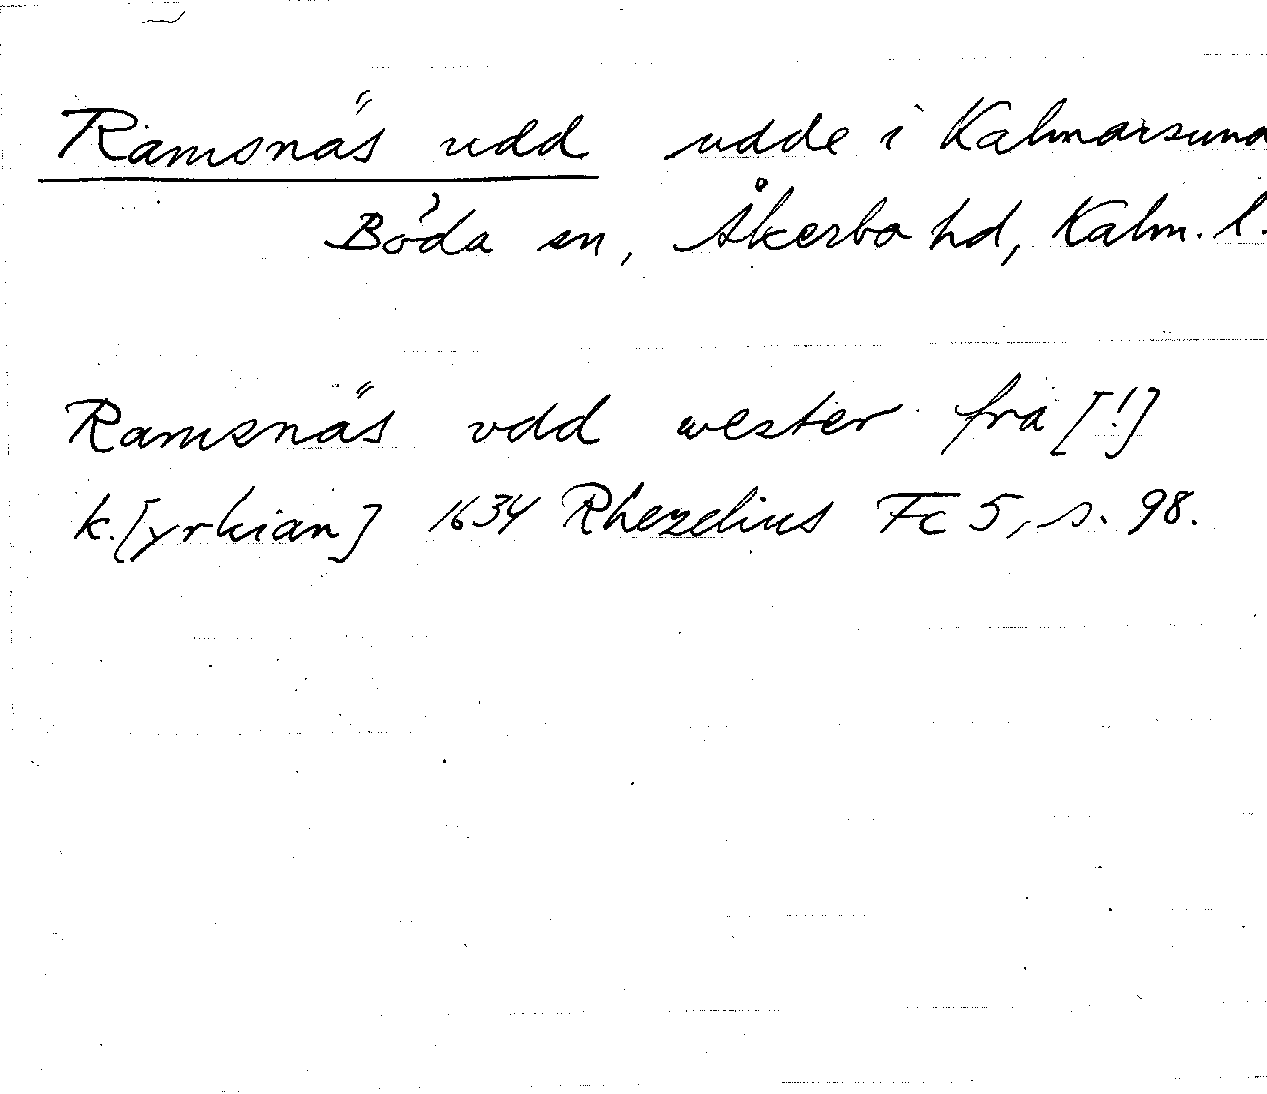 Ramsnäs udd udde i Kalmarsund
Böda sn, Åkerbo hd, Kalm. l.
Ramsnäs vdd wester fra [!]
k.[yrkian] 1634 Rhezelius Fc 5, s. 98.